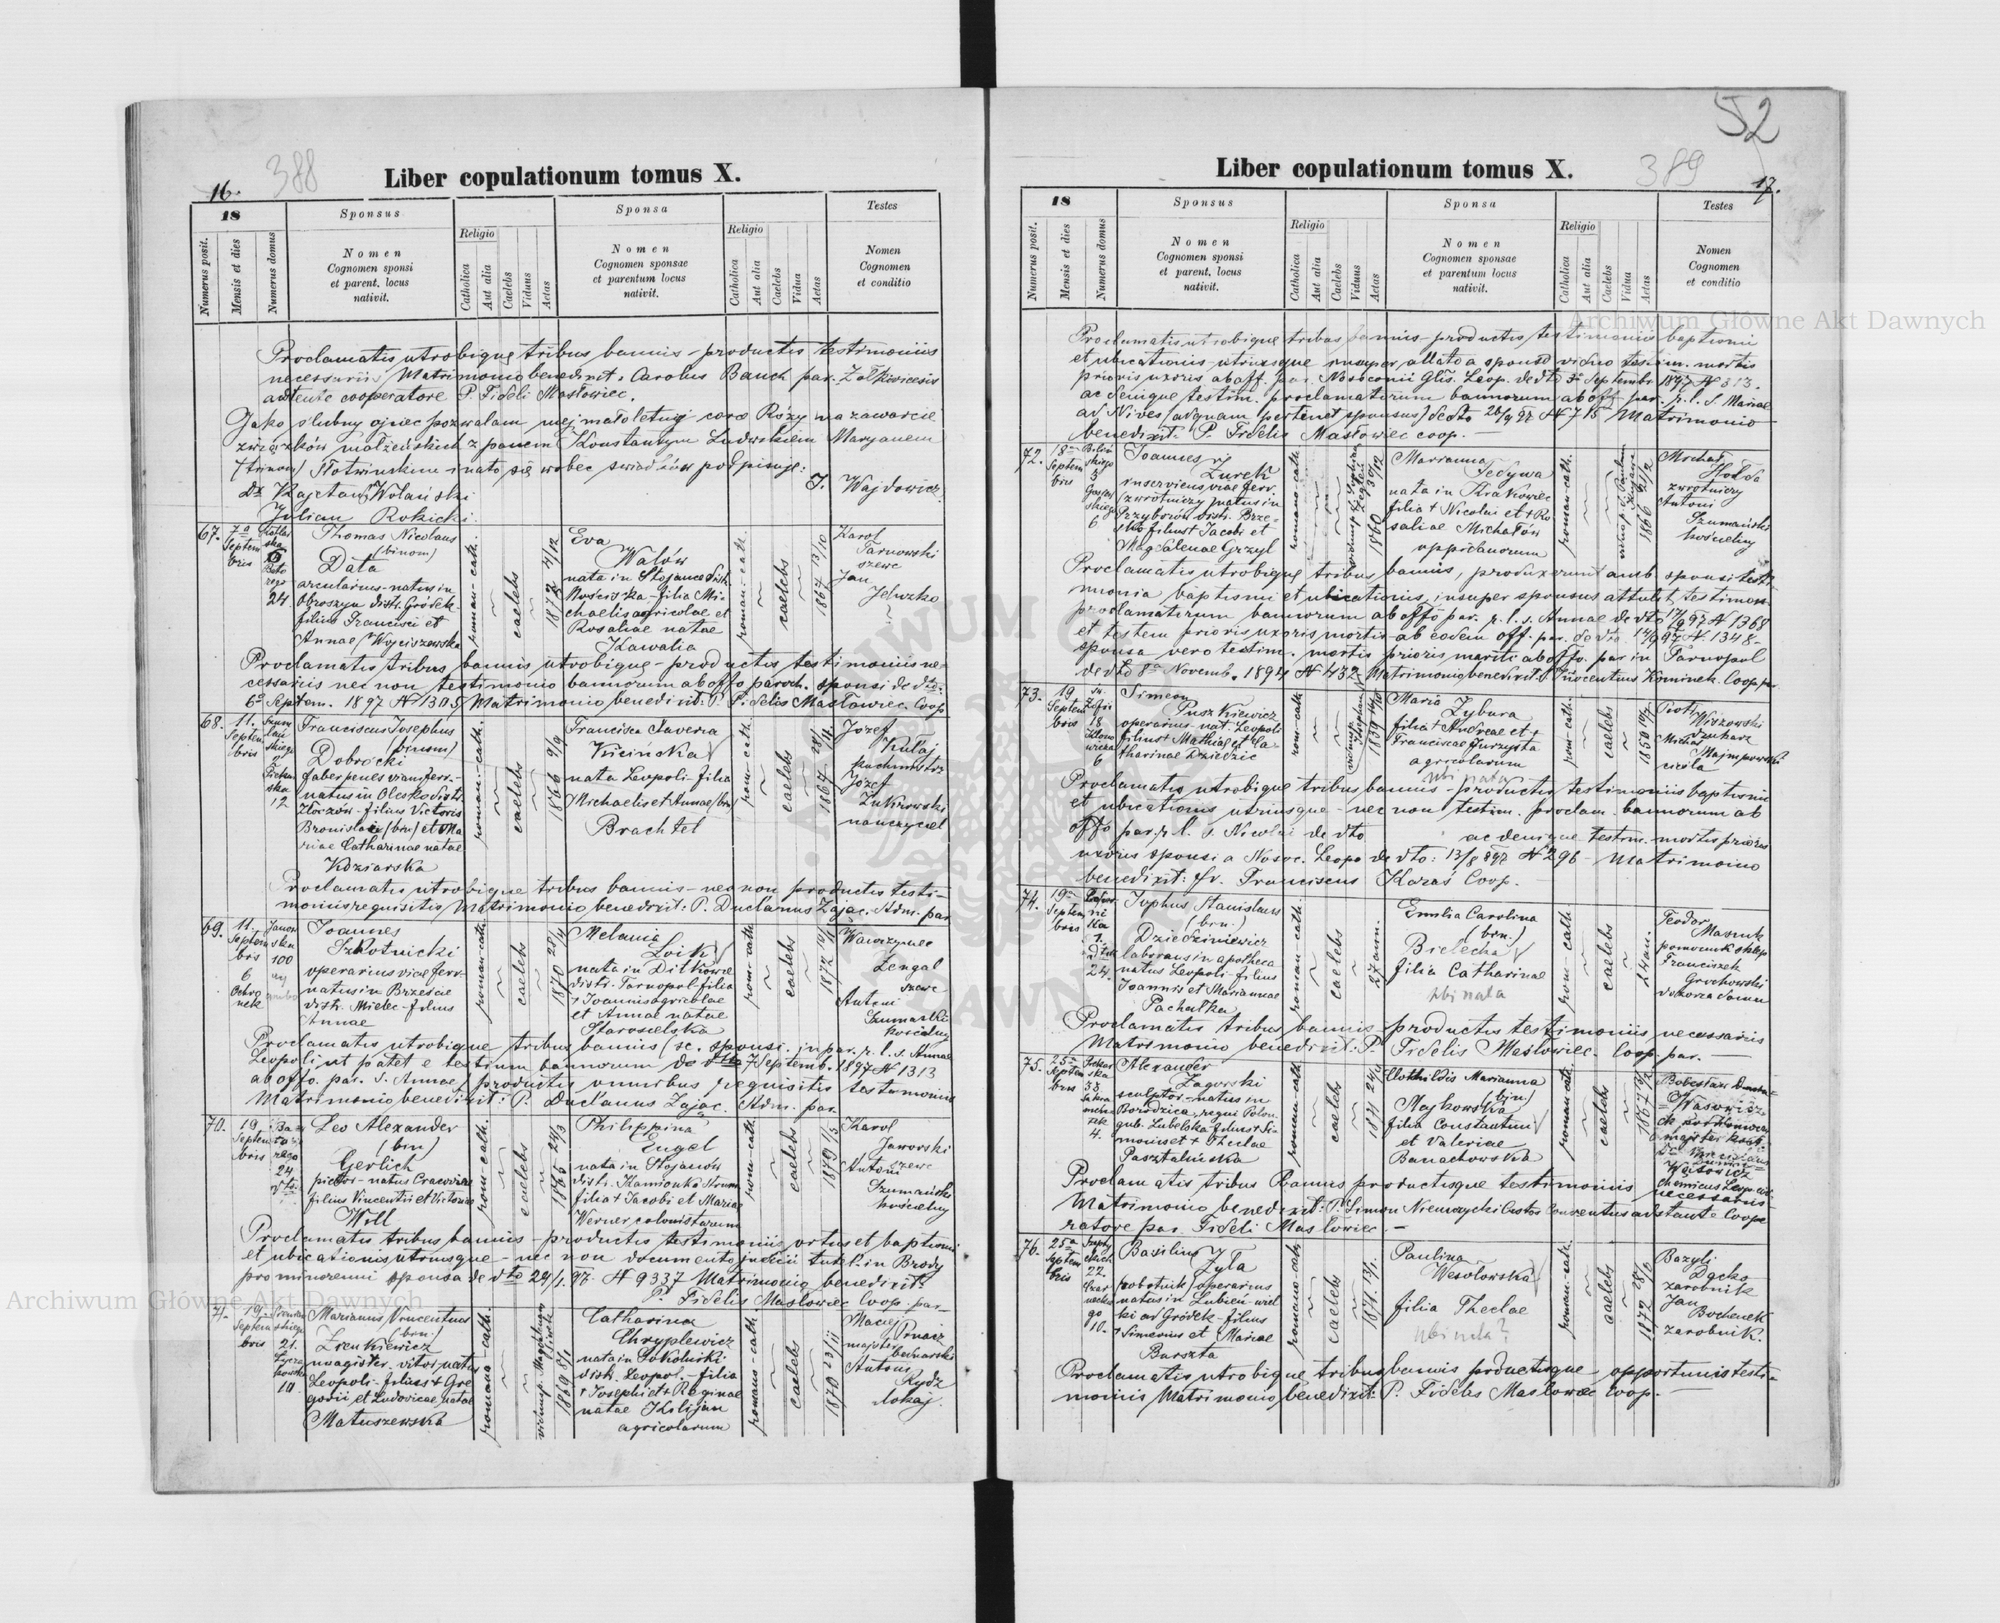 52
388
16.
Liber copulationum tomus X.
18
Sponsus
Sponsa
Testes
Numerus posit.
Mensis et dies
Numerus domus
Nomen
Cognomen sponsi
et parent. locus
nativit.
Religio
Catholica
Aut alia
Caelebs
Viduus
Aetas
Nomen
Cognomen sponsae
et parentum locus
nativit.
Religio
Catholica
Aut alia
Caelebs
Vidua
Aetas
Nomen
Cognomen
et conditio
Proclamatis utrobique tribus bannis - productis testimoniis
necessariis Matrimonio benedixit: Carolus Bauch par. Żółkiewiensis
adstante cooperatore P. Fideli Masłowiec.
Jako ślubny ojciec pozwalam mej małoletniej córce Róży na zawarcie
związków małżeńskich z panem Konstantym Ludwikiem Maryanem
(trinom) Słotwińskim i na to się wobec świadków podpisuję:
Dr Kajetan Wolański
J. Wajdowicz
Julian Rokicki
67. 7a Septembris
24.
Thomas Nicolaus
(binom)
Data
arcularius - natus in
Obroszyn distr. Gródek -
filius Francisci et
Annae Wojciszewska
roman-cath.
caelebs
1872 4/12
Eva
Walów
nata in Stojańce distr.
Mościska - filia Mi-
chaelis agricolae et
Rosaliae natae
Kawalia
roman-cath.
caelebs
1867 13/10
Karol
Tarnowski
szewc
Jan
Jelwzko
Proclamatis tribus bannis utrobique - productis testimoniis ne-
cessariis nec non testimonio bannorum ab offo paroch. sponsi de dto
6a Septem. 1897 N 1305 Matrimonio benedixit: P. Fidelis Masłowiec Coop.
68. 11. Septembris
12
Franciscus Josephus
(binom)
Dobrocki
faber penes viam ferr. -
natus in Olesko distr.
Złoczów - filius Victoris
Bronislai (bin) et Ma
riae Catharinae natae
Koziarska
roman-cath.
caelebs
1866 9/9
Francisca Xaveria
Kicińska
nata Leopoli - filia
Michaelis et Annae (bin)
Brachtel
rom-cath.
caelebs
1867 28/11
Józef
Kułaj
pachmistrz
Józef
Żukrowski
nauczyciel
Proclamatis utrobique tribus bannis - nec non productis testi-
moniis requisitis Matrimonio benedixit: P. Duclanus Zając. Adm. par.
69. 11. Septembris
Janowska 100
6
Joannes
Szkotnicki
operarius viae ferr.
natus in Brzeście
distr. Mielec - filius
Annae
roman-cath.
caelebs
1870 28/4
Melania
Loik
nata in Ditkowce
distr. Tarnopol filia
+ Joannis agricolae
et Annae natae
Starosielska
rom-cath.
caelebs
1872
Wawrzyniec
Zengal
szewc
Antoni
Szumański
kościelny
Proclamatis utrobique tribus bannis (sc. sponsi in par. r. l. s. Annae
Leopoli ut patet e testium bannorum de dtto 7 Septemb. 1897 N 1313
ab offo. par. S. Annae) productis omnibus requisitis testimoniis
Matrimonio benedixit: P. Duclanus Zając. Adm. par.
70. 19. Septembris
24
Leo Alexander
(bin)
Gerlich
pictor - natus Cracoviae
filius Vincentii et Victoriae
Woll
rom-cath.
caelebs
1865 24/3
Philippina
Engel
nata in Stojanów
distr. Kamionka Strum.
filia + Jacobi et Mariae
Werner colonistarum
rom-cath.
caelebs
1879 1/5
Karol
Jaworski
szewc
Antoni
Szumański
kościelny
Proclamatis tribus bannis - productis testimoniis ortus et baptismi
et ubicationis utriusque - nec non documento judicii tutel. in Brody
pro minorenni sponsa de dto 29/1. 97. N 9337 Matrimonio benedixit:
P. Fidelis Masłowiec Coop. par.
71. 19. Septembris
21.
10
Marianus Vincentius
(bin)
Zienkiewicz
magister vitor. natus
Leopoli - filius + Gre
gorii et Ludovicae natae
Matuszewska
romano-cath.
1869 8/1
Catharina
Chryplewicz
nata in Sokolniki
distr. Leopol. - filia
+ Josephi et + Reginae
natae Kilijan
agricolarum
romano-cath.
caelebs
1870 23/11
Maciej
majster bednarski
Antoni
Rydz
lokaj.
389
17.
Liber copulationum tomus X.
18
Sponsus
Sponsa
Testes
Numerus posit.
Mensis et dies
Numerus domus
Nomen
Cognomen sponsi
et parent. locus
nativit.
Religio
Catholica
Aut alia
Caelebs
Viduus
Aetas
Nomen
Cognomen sponsae
et parentum locus
nativit.
Religio
Catholica
Aut alia
Caelebs
Vidua
Aetas
Nomen
Cognomen
et conditio
Proclamatis utrobique tribus bannis - productis testimoniis baptismi
et ubicationis utriusque insuper allato a sponso viduo testim. mortis
prioris uxoris ab off. par. Nosocomii Glis. Leop. de dto 3a Septembr. 1897 N 313.
ac denique testim. proclamatorum bannorum ab off. par. r. l. S. Mariae
ad Nives (ad quam pertinet sponsus) de dto 26/9 97 N 715 Matrimonio
benedixit P. Fidelis Masłowiec coop.
72. 18a Septembris
6
Joannes
Żurek
inserviens viae ferr.
/zwrotniczy/ natus in
Przyborów distr. Brze-
sko filius + Jacobi et
Magdalenae Grzyl
romano-cath.
1860 30/12
Marianna
Jedywa
nata in Krakowiec
filia + Nicolai et + Ro
saliae Michałów
oppidanorum
roman-cath.
1866
Michał
Hołda
zwrotniczy
Antoni
Szumański
kościelny
Proclamatis utrobique tribus bannis, produxerunt amb. sponsi testi-
monia baptismi et ubicationis, insuper sponsus attulit testimon.
proclamatorum bannorum ab offo par. r. l. s. Annae de dto 17/9 97 N 1368
et testem prioris uxoris mortis - ab eodem off. par. de dto 14/9 97 N. 1348 -
sponsa vero testim. mortis prioris mariti ab offo. par. in Tarnopol
de dto 8a Novemb. 1894 N 432 Matrimonio benedixit P. Innocentius Kominek Coop. par.
73. 19 Septembris
18
6
Simeon
Puszkiewicz
operarius - nat. Leopoli
filius + Mathiae et Ca-
tharinae Dziedzic
rom-cath.
1839
Maria
Zybura
filia + Andreae et +
Franciscae Jurzysta
agricolarum
ubi nata
rom-cath.
caelebs
1850
Piotr
Wiszowski
drukarz
Michał
cieśla
Proclamatis utrobique tribus bannis - productis testimoniis baptismi
et ubicationis utriusque - nec non testim. proclam. bannorum ab
offo par. r. l. s. Nicolai de dto ac denique testim. mortis prioris
uxoris sponsi a Nosoc. Leopo de dto: 13/8 897 N 296 - Matrimonio
benedixit: fr. Franciscus Karaś Coop.
74. 19a Septembris
1.
24.
Josephus Stanislaus
(bin.)
Dziedziniewicz
laborans in apotheca
natus Leopoli - filius
Joannis et Mariannae
Pachulka
roman-cath.
caelebs
27 ann.
Emilia Carolina
(bin.)
Bielecka
filia Catharinae
ubi nata
rom-cath.
caelebs
24 an.
Teodor
Masiuk
pomocnik sklep
Franciszek
Grochowski
dozorca domu
Proclamatis tribus bannis - productis testimoniis necessariis
Matrimonio benedixit: P. Fidelis Masłowiec. Coop. par. -
75. 25a Septembris
4.
Alexander
Zagórski
sculptor - natus in
Borodzica, regni Polon.
gub. Lubelska filius + Si-
monis et + Theclae
Pasztaleńska
roman-cath.
caelebs
1841
Clothildis Marianna
(bin)
Majkowska
filia Constantini
et Valeriae
Banachowska
roman-cath.
caelebs
1867
Wasowicz
Wąsowicz
Proclamatis tribus bannis productisque testimoniis necessariis
Matrimonio benedixit: P. Simon Niemczycki Custos Conventus adstante Coope
ratore par. Fideli Masłowiec. -
76. 25a Septembris
22.
10.
Basilius
Żyła
/robotnik/ operarius
natus in Lubień wiel
ki ad Gródek - filius
+ Simeonis et Mariae
Burszta
romano-cath.
caelebs
1871.
Paulina
Wesołowska
filia Theclae
ubi nata?
roman-cath.
caelebs
1872
Bazyli
Dacko
zarobnik
Jan
Bochenek
zarobnik.
Proclamatis utrobique tribus bannis productisque opportunis testi-
moniis Matrimonio benedixit: P. Fidelis Masłowiec Coop. -
Archiwum Główne Akt Dawnych
Archiwum Główne Akt Dawnych